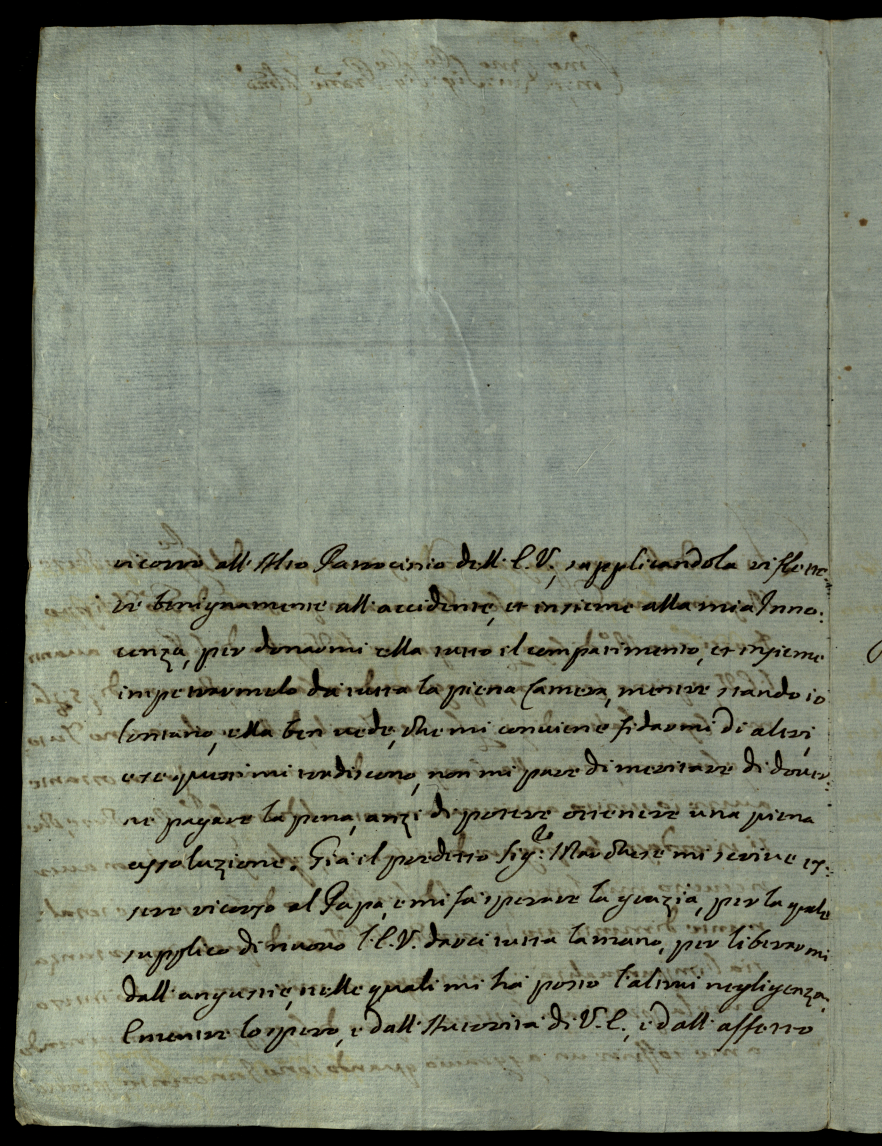 ricorro all'Alto Patrocinio dell'E.V., supplicandola riflette:
re benignamente all'accidente, et insieme alla mia Inno:
cenza, per donarmi ella tutto il compatimento, et insieme
impetrarmelo da tutta la piena Camera, mentre stando io
lontano, ella ben vede, che mi conviene fidarmi di altri,
e se questi mi tradiscono, non mi pare di meritare di dover:
ne pagare la pena, anzi di potere ottenere una piena
assoluzione. Già il predetto Sig.e Marchese mi scrive es:
sere ricorso al Papa, e mi fa sperare la grazia, per la quale
supplico di nuovo l'E.V. darci tutta la mano, per liberarmi
dall'angustie, nelle quali mi ha posto l'altrui negligenza.
E mentre lo spero, e dall'Autorità di V.E., e dall'affetto